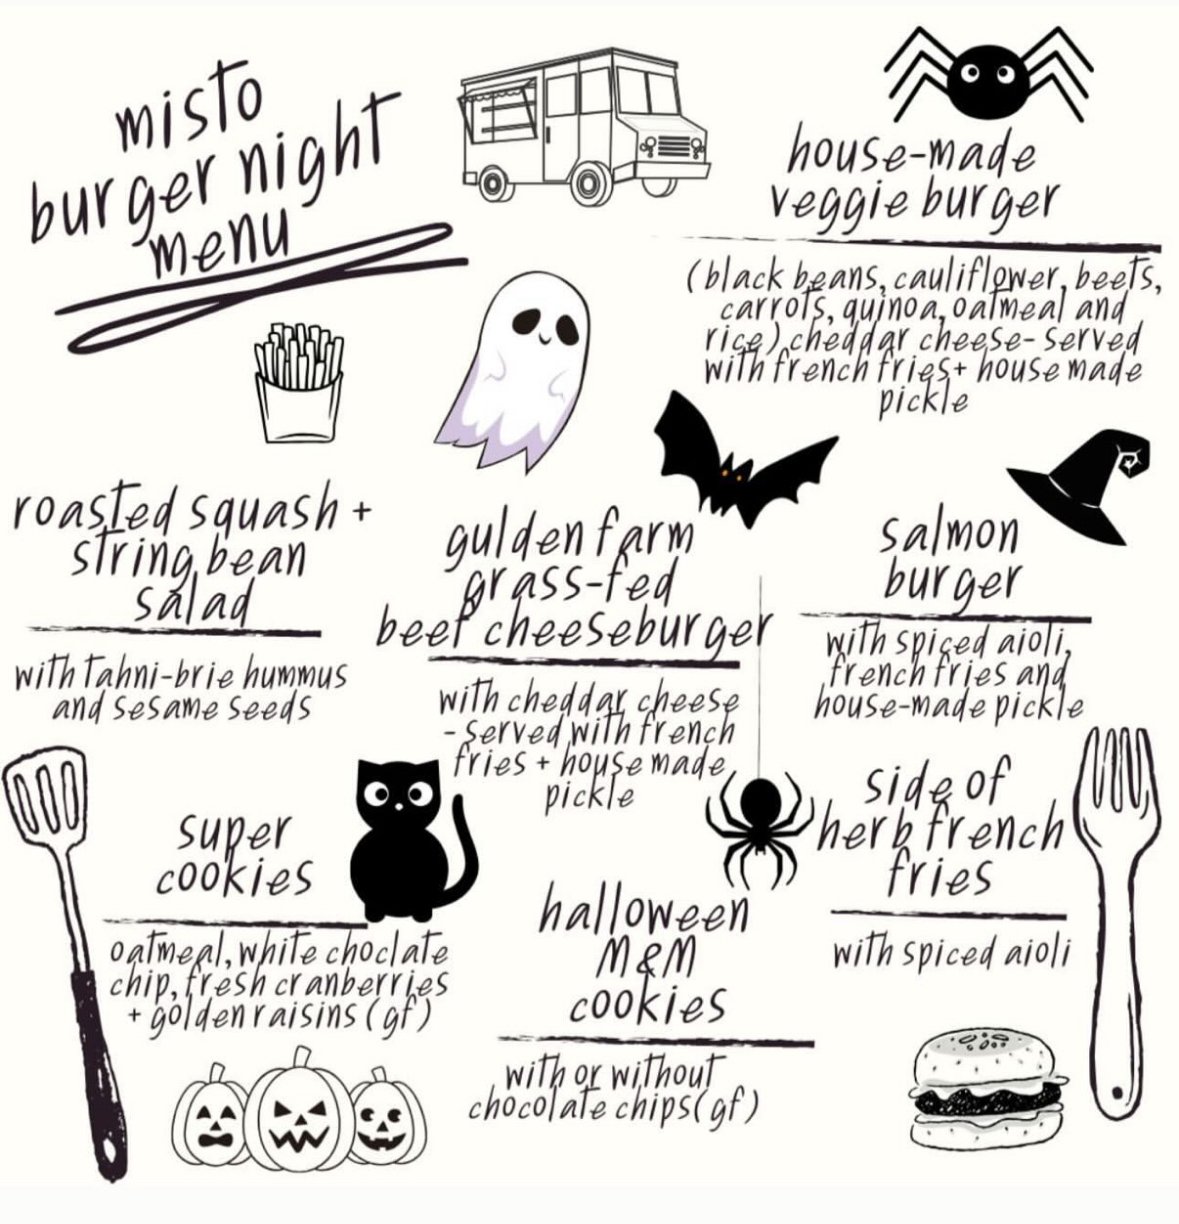 misto
burger night
menu
house-made
veggie burger
(black beans, cauliflower, beets,
carrots, quinoa, oatmeal and
rice) cheddar cheese- served
with french fries+ house made
pickle
roasted squash +
string bean
salad
with tahni-brie hummus
and sesame seeds
gulden farm
grass-fed
beef cheeseburger
with cheddar cheese
- served with french
fries + house made
pickle
salmon
burger
with spiced aioli,
french fries and
house-made pickle
super
cookies
oatmeal, white choclate
chip, fresh cranberries
+ golden raisins (gf)
halloween
M&M
cookies
with or without
chocolate chips(gf)
side of
herb french
fries
with spiced aioli